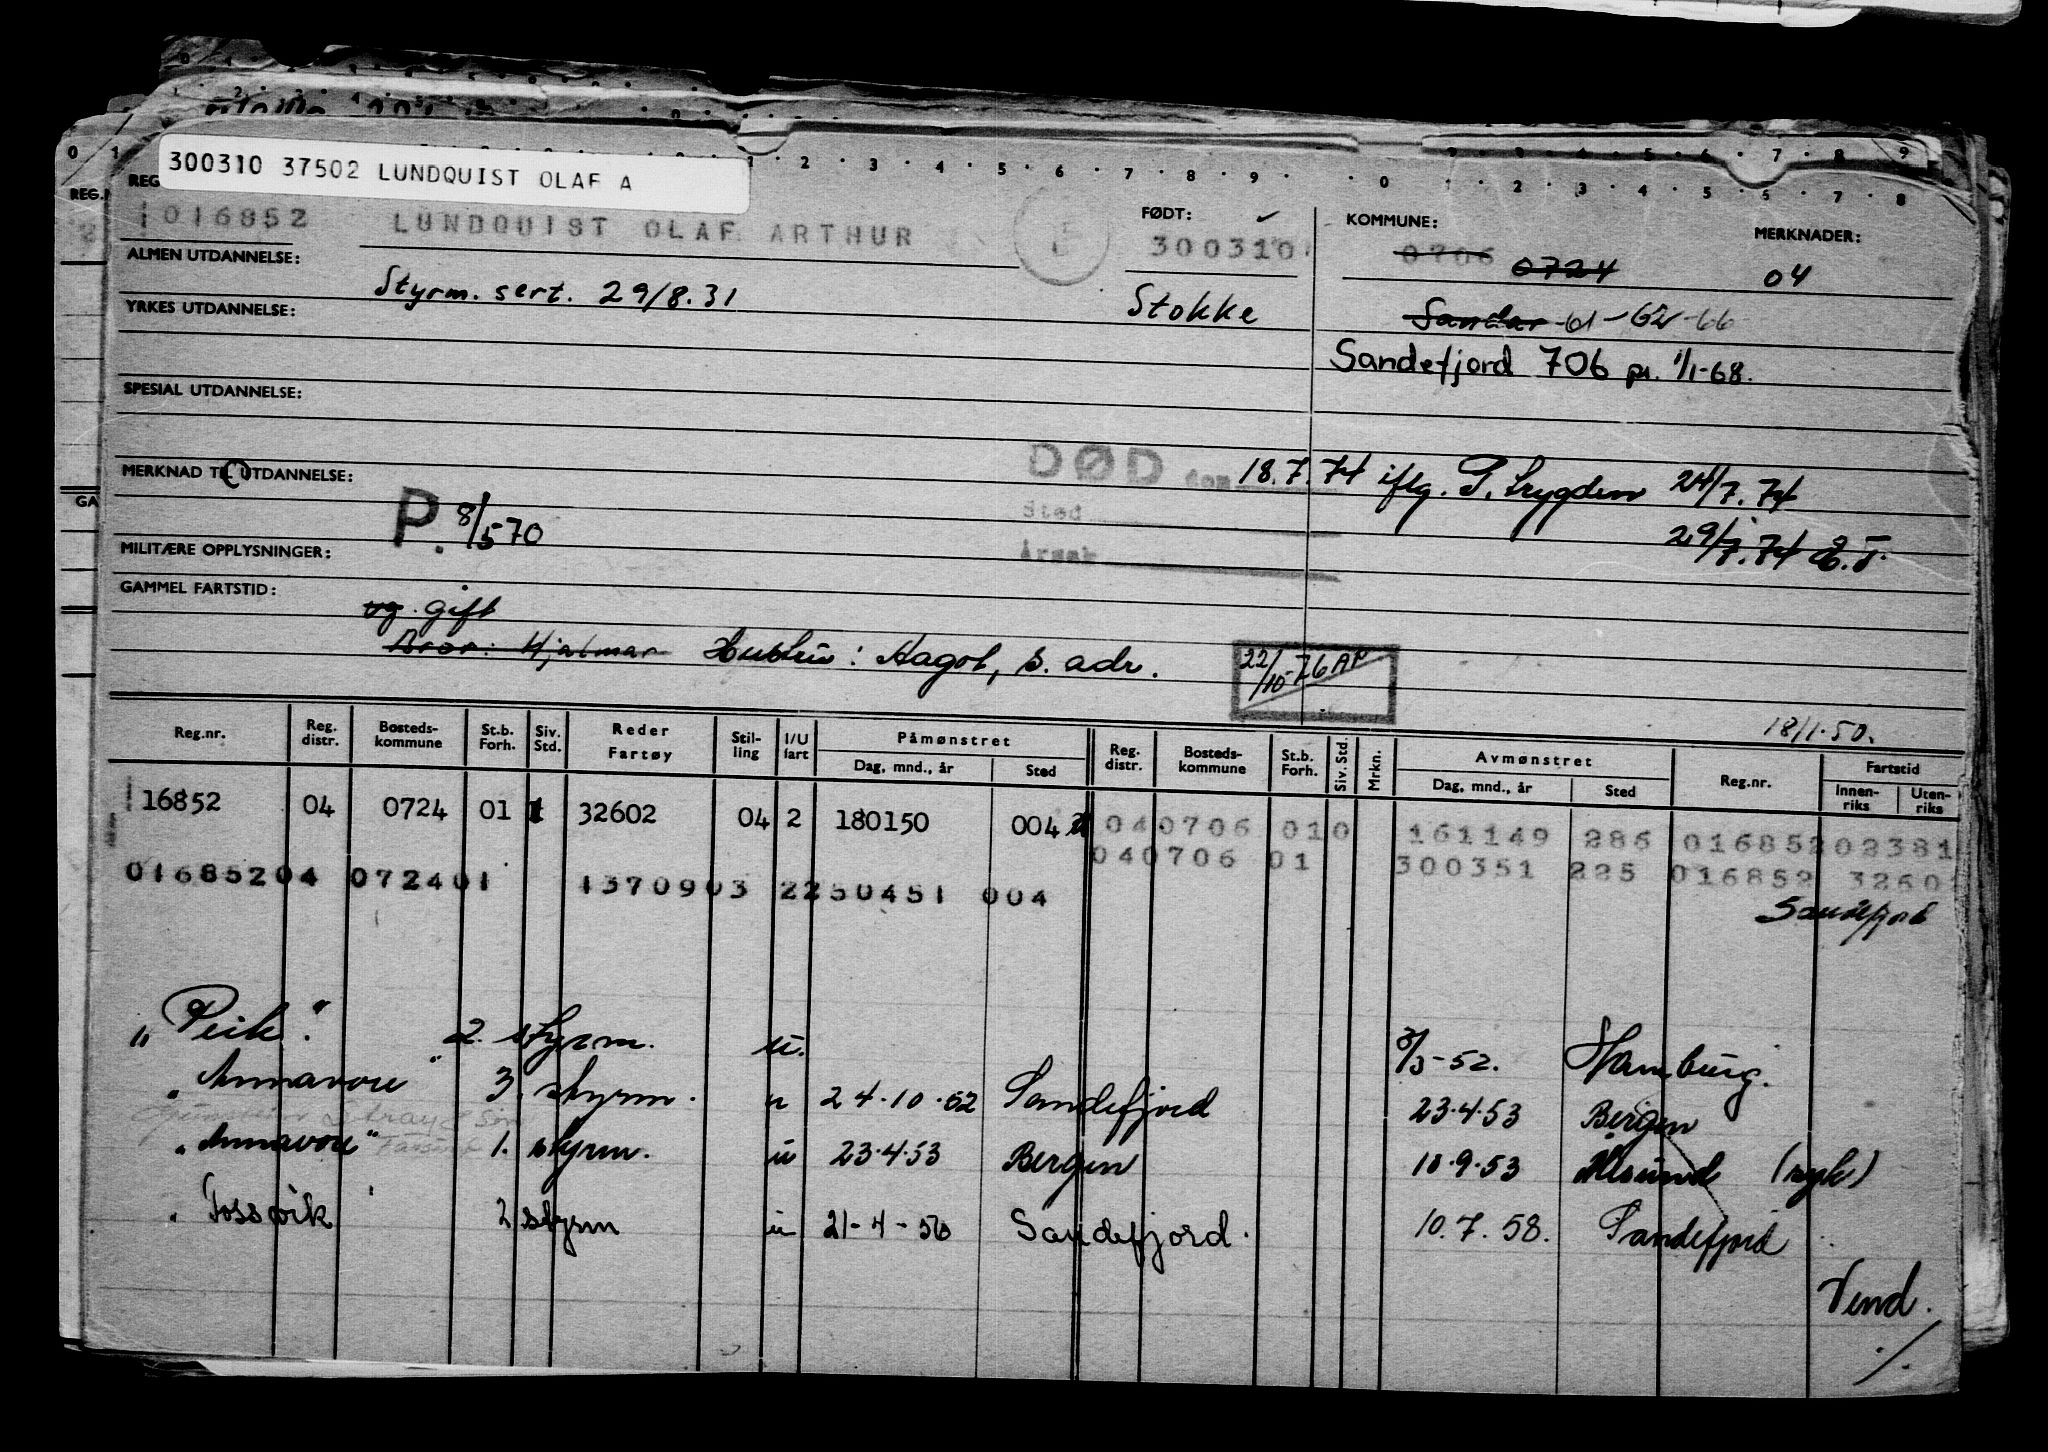 300310 37502 LUNDQUIST OLAF A
REG.
1016852 LUNDQUIST OLAF ARTHUR FØDT: 300310 KOMMUNE: 0706 0724 MERKNADER: 04
ALMEN UTDANNELSE:
Styrm. sert. 29/8.31 Stokke Sandar 61-62-66
YRKES UTDANNELSE:
Sandefjord 706 pr. 1/1-68.
SPESIAL UTDANNELSE:
MERKNAD TIL UTDANNELSE:
DØD den 18.7.74 iflg. P. trygden 24/7.74
P. 8/5 70 Sted 29/7.74 E.T.
MILITÆRE OPPLYSNINGER: Årsak
GAMMEL FARTSTID:
ug. gift
Bror: Hjalmar Hustru: Aagot, s. adr. 22/10-76 AP
18/1-50.
Reg.nr. Reg. distr. Bosteds-kommune St.b. Forh. Siv. Std. Reder Fartøy Stil-ling I/U fart Påmønstret Dag, mnd., år Sted Reg. distr. Bosteds-kommune St.b. Forh. Siv. Std. Mrkn. Avmønstret Dag, mnd., år Sted Reg.nr. Fartstid Innen-riks Uten-riks
16852 04 0724 01 1 32602 04 2 180150 004 040706 010 161149 286 016852 02381
040706 01 300351 225 016852 32602
01685204 072401 1370903 2250451 004
Sandefjord
"Peik". 2. styrm. u. 8/3-52. Hamburg.
"Annavore" 3. styrm. u 24.10.52 Sandefjord 23.4.53 Bergen
"Annavore" 1. styrm. u 23.4.53 Bergen 10.9.53 Ålesund (syk)
"Fossvik" 2 styrm u 21-4-56 Sandefjord. 10.7.58. Sandefjord
Vend.
./.